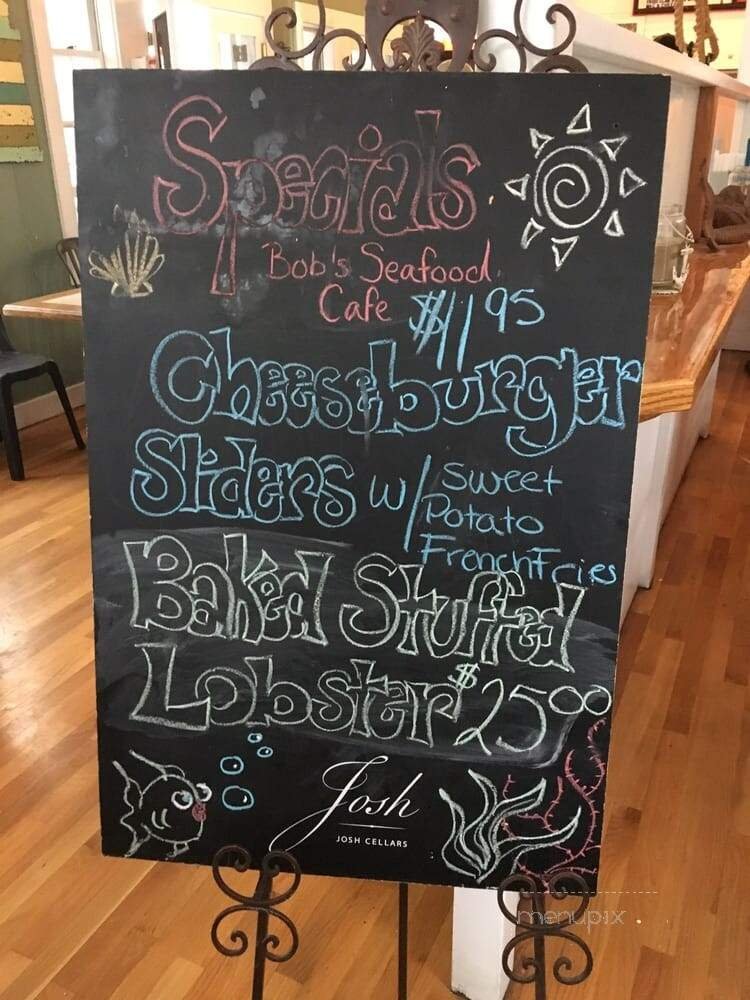 Specials
Bob's Seafood
Cafe $11 95
Cheeseburger
Sliders w/ Sweet
Potato
French Fries
Baked Stuffed
Lobster $25 00
Josh
JOSH CELLARS
menupix